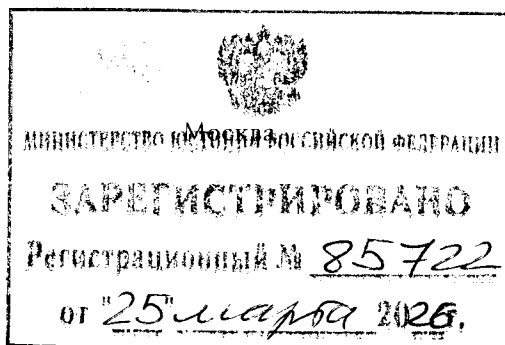 Москва
МИНИСТЕРСТВО ЮСТИЦИИ РОССИЙСКОЙ ФЕДЕРАЦИИ
ЗАРЕГИСТРИРОВАНО
Регистрационный № 85722
от "25" марта 2026г.